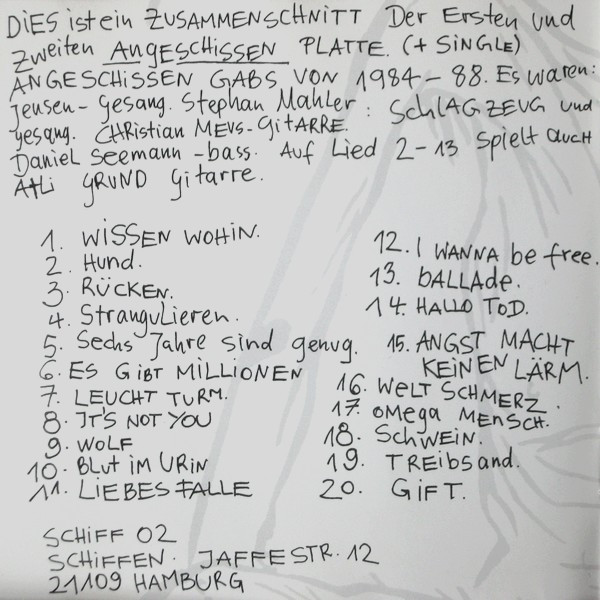 DiES ist ein ZUSAMMENSCHNITT Der Ersten und
Zweiten ANGESCHISSEN PLATTE. (+ SiNGLE)
ANGESCHISSEN GABS VON 1984 - 88. Es waren:
Jensen - Gesang. Stephan Mahler: SchLAGZEUG und
gesang. CHRistian MEVS - GitARRE.
Daniel Seemann - bass. Auf Lied 2 - 13 spielt auch
Atli GRUND Gitarre.
1. WiSSEN WOHiN.
2. Hund.
3. RÜCKEN.
4. StranguLieren.
5. Sechs Jahre sind genug.
6. ES GiBT MiLLiONEN
7. LEUCHT TURM.
8. IT'S NOT YOU
9. WOLF
10. BLut iM URiN
11. LiEBESFALLE
12. I WANNA be free.
13. bALLAde.
14. HALLO ToD.
15. ANGST MACHT
KEiNEN LÄRM.
16. WeLT SCHMERZ.
17. OMega MENSCH.
18. SchWEiN.
19. TReibsand.
20. GiFT.
SCHiFF 02
SCHiFFEN. JAFFESTR. 12
21109 HAMBURG